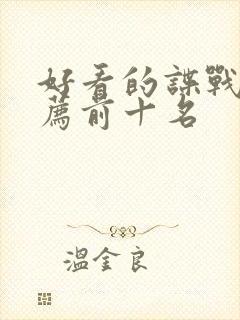 好看的諜戰
薦前十名
溫金良